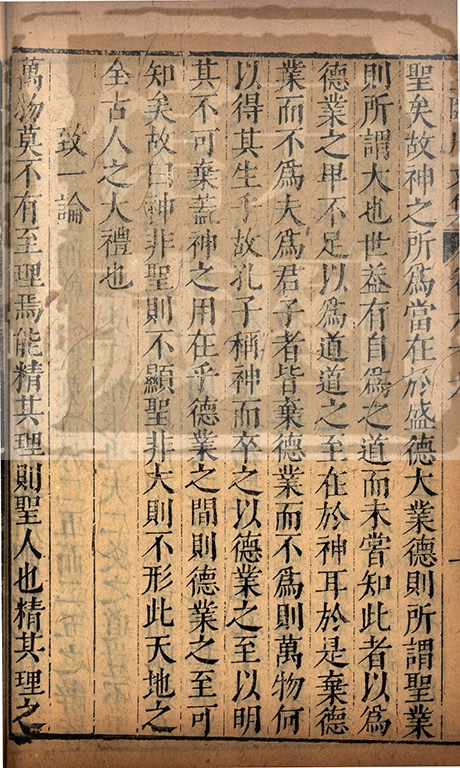 聖矣故神之所爲當在於盛德大業德則所謂聖業
則所謂大也世葢有自爲之道而未嘗知此者以爲
德業之卑不足以爲道道之至在於神耳於是棄德
業而不爲夫爲君子者皆棄德業而不爲則萬物何
以得其生乎故孔子稱神而卒之以德業之至以明
其不可棄蓋神之用在乎德業之間則德業之至可
知矣故曰神非聖則不顯聖非大則不形此天地之
全古人之大禮也
致一論
萬物莫不有至理焉能精其理則聖人也精其理之